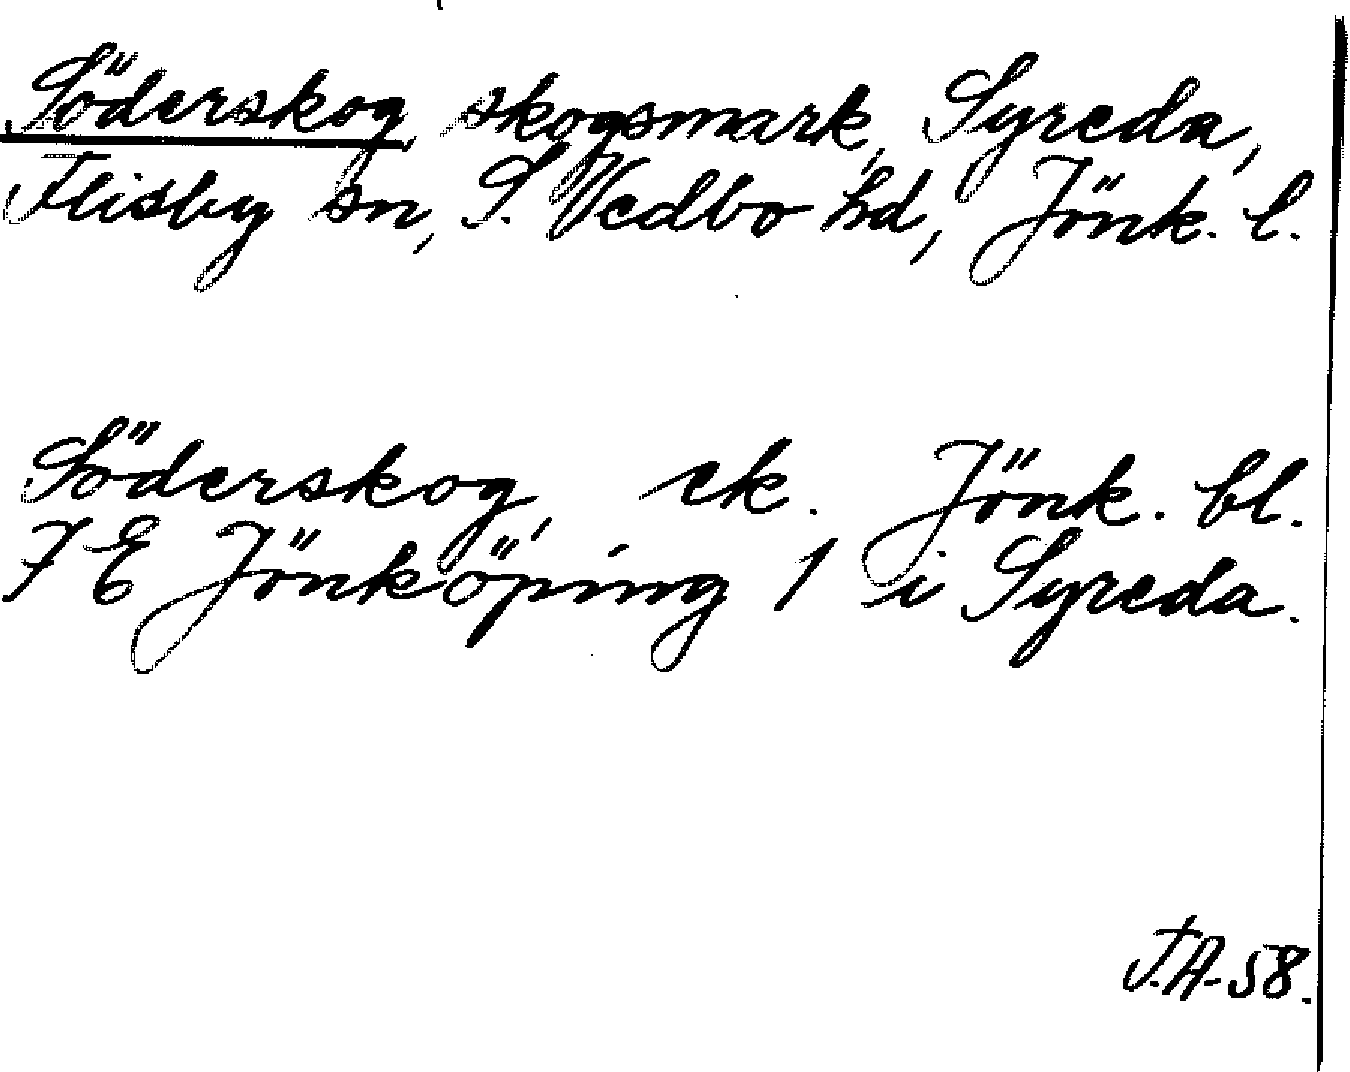 Söderskog, skogsmark, Syreda,
Flisby sn, S. Vedbo hd, Jönk. l.
Söderskog, ek. Jönk. bl.
7 E Jönköping 1 i Syreda.
F.A-58.